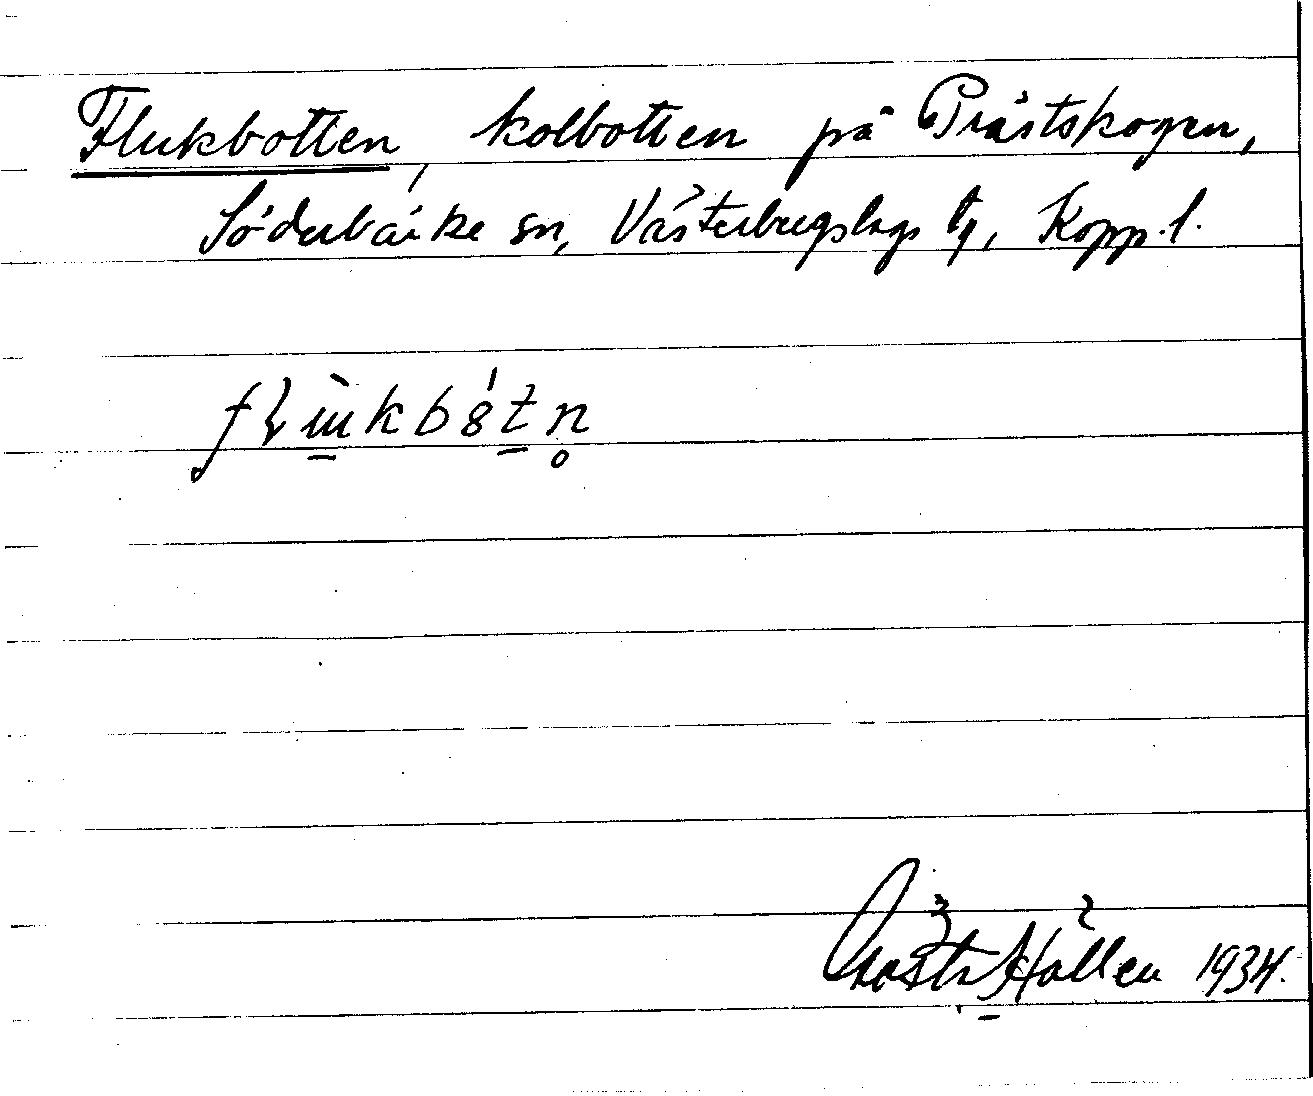 Flukbotten, kolbotten på Prästskogen,
Söderbärke sn, Västerbergslags tg, Kopp.l.
Hållen 1934.